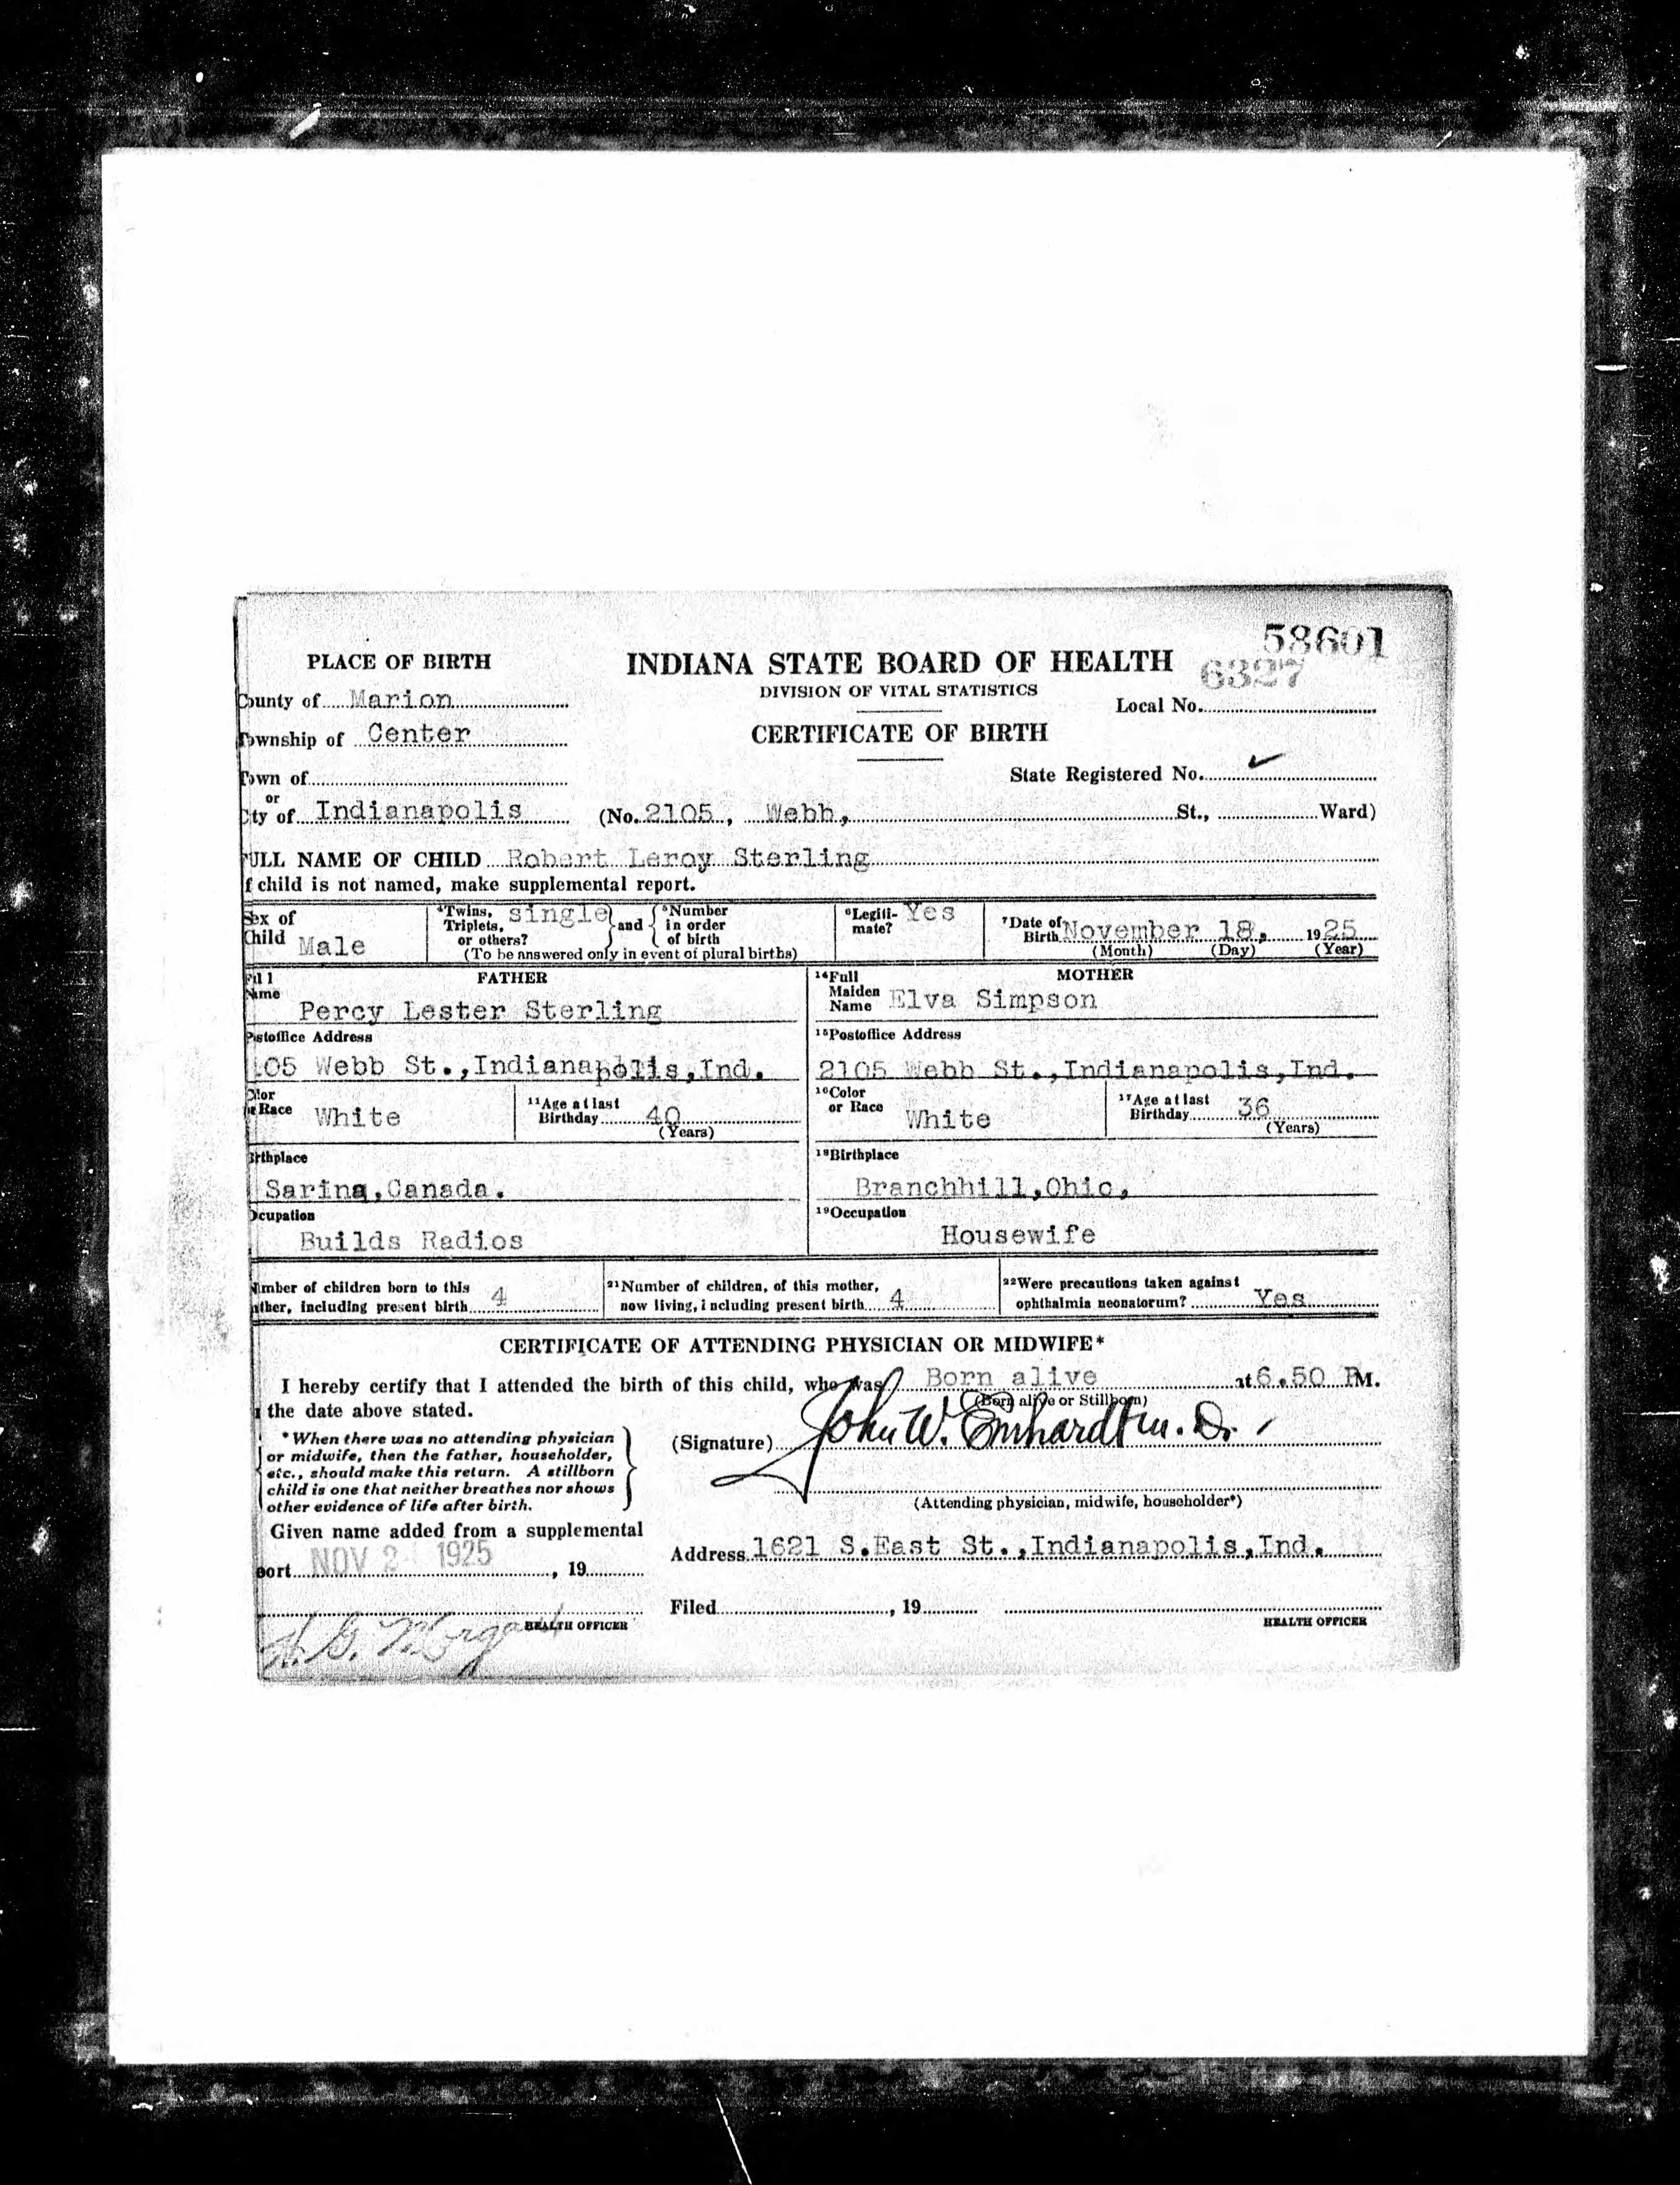 58601
PLACE OF BIRTH
INDIANA STATE BOARD OF HEALTH
6327
DIVISION OF VITAL STATISTICS
County of Marion
Local No.
Township of Center
CERTIFICATE OF BIRTH
Town of
State Registered No. ✓
or
City of Indianapolis (No. 2105, Webb, St., Ward)
FULL NAME OF CHILD Robert Leroy Sterling
If child is not named, make supplemental report.
Sex of Child Male
4 Twins, Triplets, or others? single and 5 Number in order of birth
(To be answered only in event of plural births)
6 Legiti-mate? Yes
7 Date of Birth November 18, 1925
(Month) (Day) (Year)
FATHER
Full Name
Percy Lester Sterling
Postoffice Address
105 Webb St.,Indianapolis,Ind.
Color or Race White
11 Age at last Birthday 40
(Years)
Birthplace
Sarina,Canada.
Occupation
Builds Radios
MOTHER
14 Full Maiden Name Elva Simpson
15 Postoffice Address
2105 Webb St.,Indianapolis,Ind.
16 Color or Race White
17 Age at last Birthday 36
(Years)
18 Birthplace
Branchhill,Ohio,
19 Occupation
Housewife
Number of children born to this
mother, including present birth 4
21 Number of children, of this mother,
now living, including present birth 4
22 Were precautions taken against
ophthalmia neonatorum? Yes
CERTIFICATE OF ATTENDING PHYSICIAN OR MIDWIFE*
I hereby certify that I attended the birth of this child, who was Born alive at 6.50 PM.
(Born alive or Stillborn)
the date above stated.
* When there was no attending physician
or midwife, then the father, householder,
etc., should make this return. A stillborn
child is one that neither breathes nor shows
other evidence of life after birth.
(Signature) John W. Emhardt M.D.
(Attending physician, midwife, householder*)
Given name added from a supplemental
port NOV 2 1925, 19
Address 1621 S.East St.,Indianapolis,Ind.
Filed , 19
HEALTH OFFICER
HEALTH OFFICER
H. G. Morgan